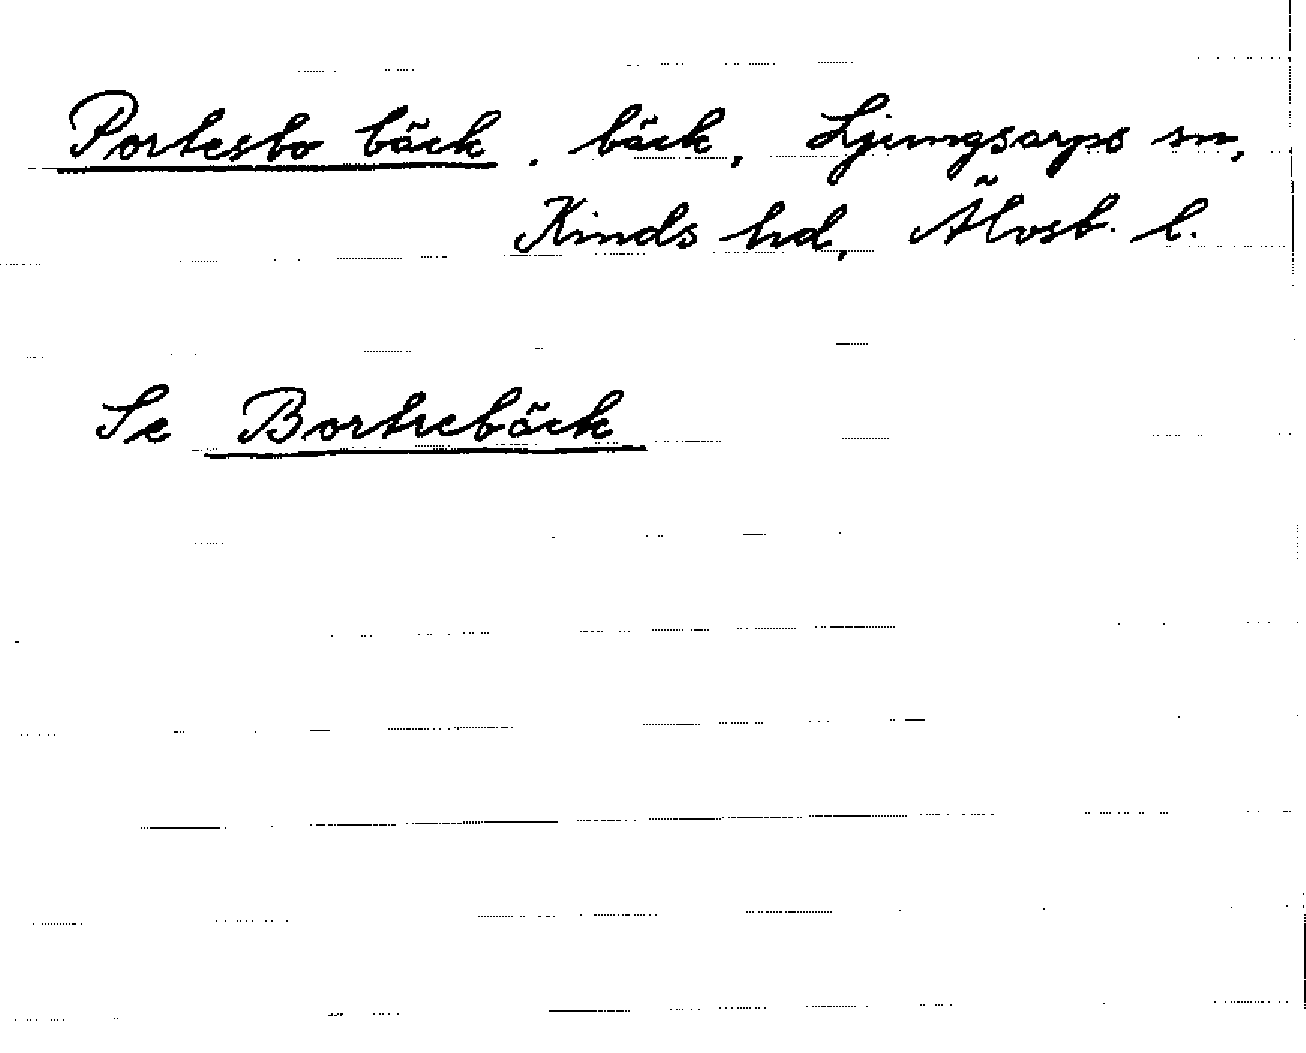 Portesbo bäck. bäck, Ljungsarps sn,
Kinds hd, Älvsb. l.
Se Bortrebäck